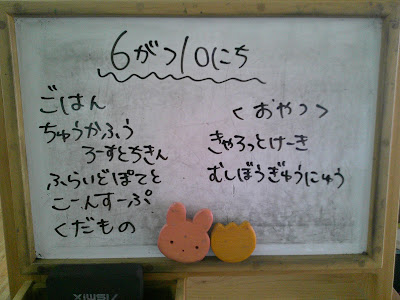 6がつ10にち
ごはん
ちゅうかふう
ろーすとちきん
ふらいどぽてと
こーんすーぷ
くだもの
<おやつ>
きゃろっとけーき
むしぼうぎゅうにゅう